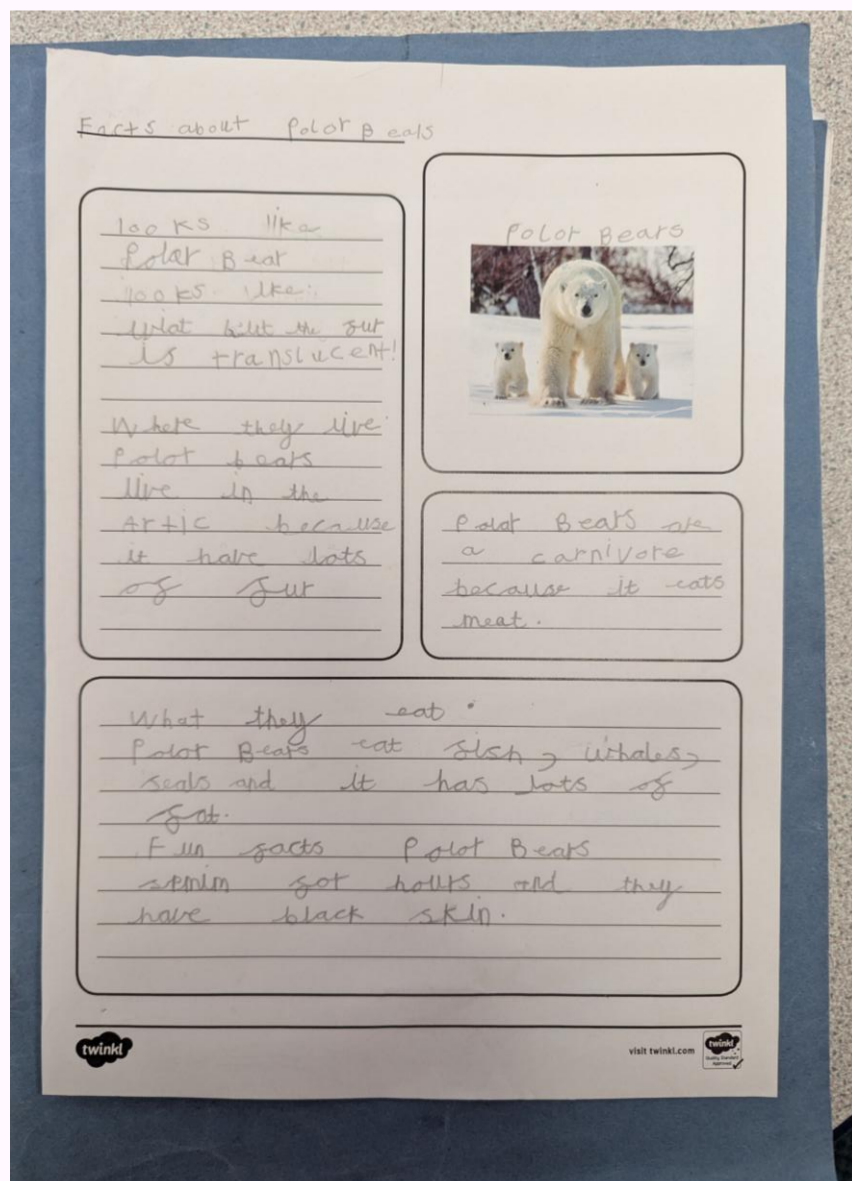 Facts about Polor Bears
looks like
Polar Bear
looks like
wiat but the fur
is translucent!
Where they live
Polor bears
live in the
Artic because
it have lots
of fur
Polor Bears
Polor Bears are
a carnivore
because it eats
meat.
What they eat
Polor Bears eat fish, whales,
seals and it has lots of
fat.
Fun facts Polor Bears
for hours and they
have black skin.
twinkl
visit twinkl.com
twinkl
Quality Standard
Approved